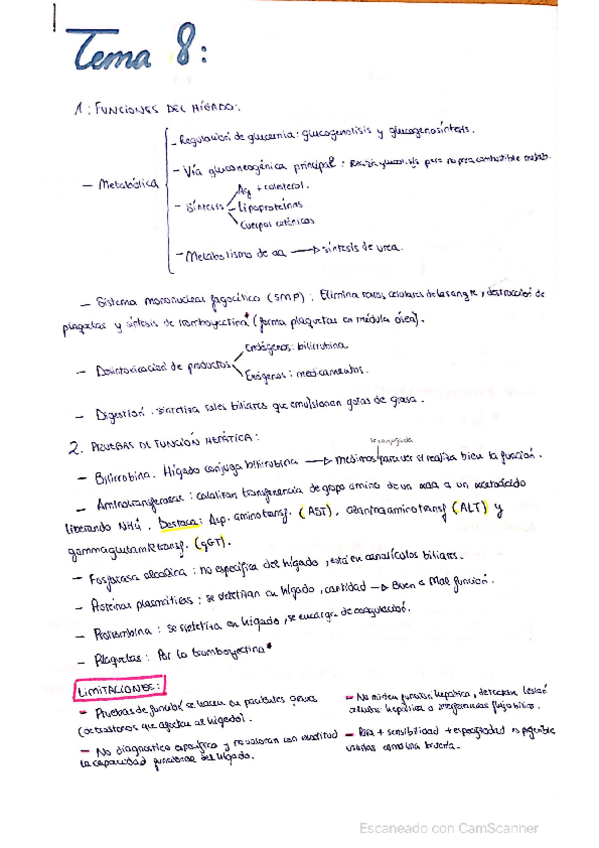 Tema 8:
1: FUNCIONES DEL HÍGADO:
- Metabólica
- Regulación de glucemia: glucogenolisis y glucogenosíntesis.
- Vía gluconeogénica principal: para no para combustible metab.
- Síntesis
Ag + colesterol.
Lipoproteínas
Cuerpos cetónicos
- Metabolismo de aa → síntesis de urea.
- Sistema mononuclear fagocítico (SMP): Elimina restos celulares de la sangre, destrucción de
plaquetas y síntesis de tromboyectina* (forma plaquetas en médula ósea).
- Desintoxicación de productos
Endógenos: bilirrubina
Exógenos: medicamentos.
- Digestión: sintetiza sales biliares que emulsionan gotas de grasa.
2. PRUEBAS DE FUNCIÓN HEPÁTICA:
la conjugada
- Bilirrubina. Hígado conjuga bilirrubina → medimos para ver si realiza bien la función.
- Aminotransferasas: catalizan transferencia de grupo amino de un aa a un
liberando NH4. Destaca: Asp. aminotransf. (AST), alanina aminotransf (ALT) y
gammaglutamiltransf. (gGT).
- Fosfatasa alcalina: no específica del hígado, está en canalículos biliares.
- Proteínas plasmáticas: se sintetizan en hígado, cantidad → Buena o Mal función.
- Protrombina: se sintetiza en hígado, se encarga de coagulación.
- Plaquetas: Por la tromboyectina*
LIMITACIONES:
- Pruebas de función se hacen en pacientes graves
(o trastornos que afectan al hígado).
- No diagnostico específico y no valoran con exactitud
la capacidad funcional del hígado.
- No miden función hepática, detectan lesión
células hepática o interferencias flujo biliar.
- Para + sensibilidad + especificidad es preferible
usarlas como una batería.
Escaneado con CamScanner